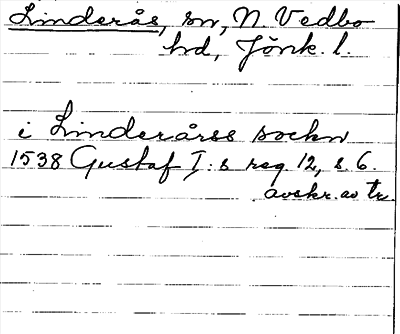 Linderås, sn, N Vedbo
hd, Jönk. l.
i Linderårss sockn
1538 Gustaf I:s reg. 12, s. 6.
avskr. av tr.